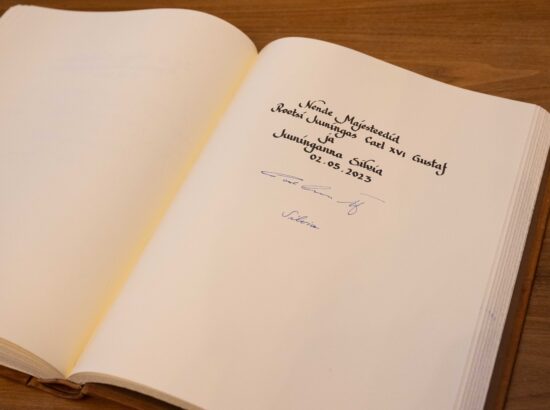 Nende Majesteedid
Rootsi Kuningas Carl XVI Gustaf
ja
Kuninganna Silvia
02.05.2023
Carl Gustaf
Silvia